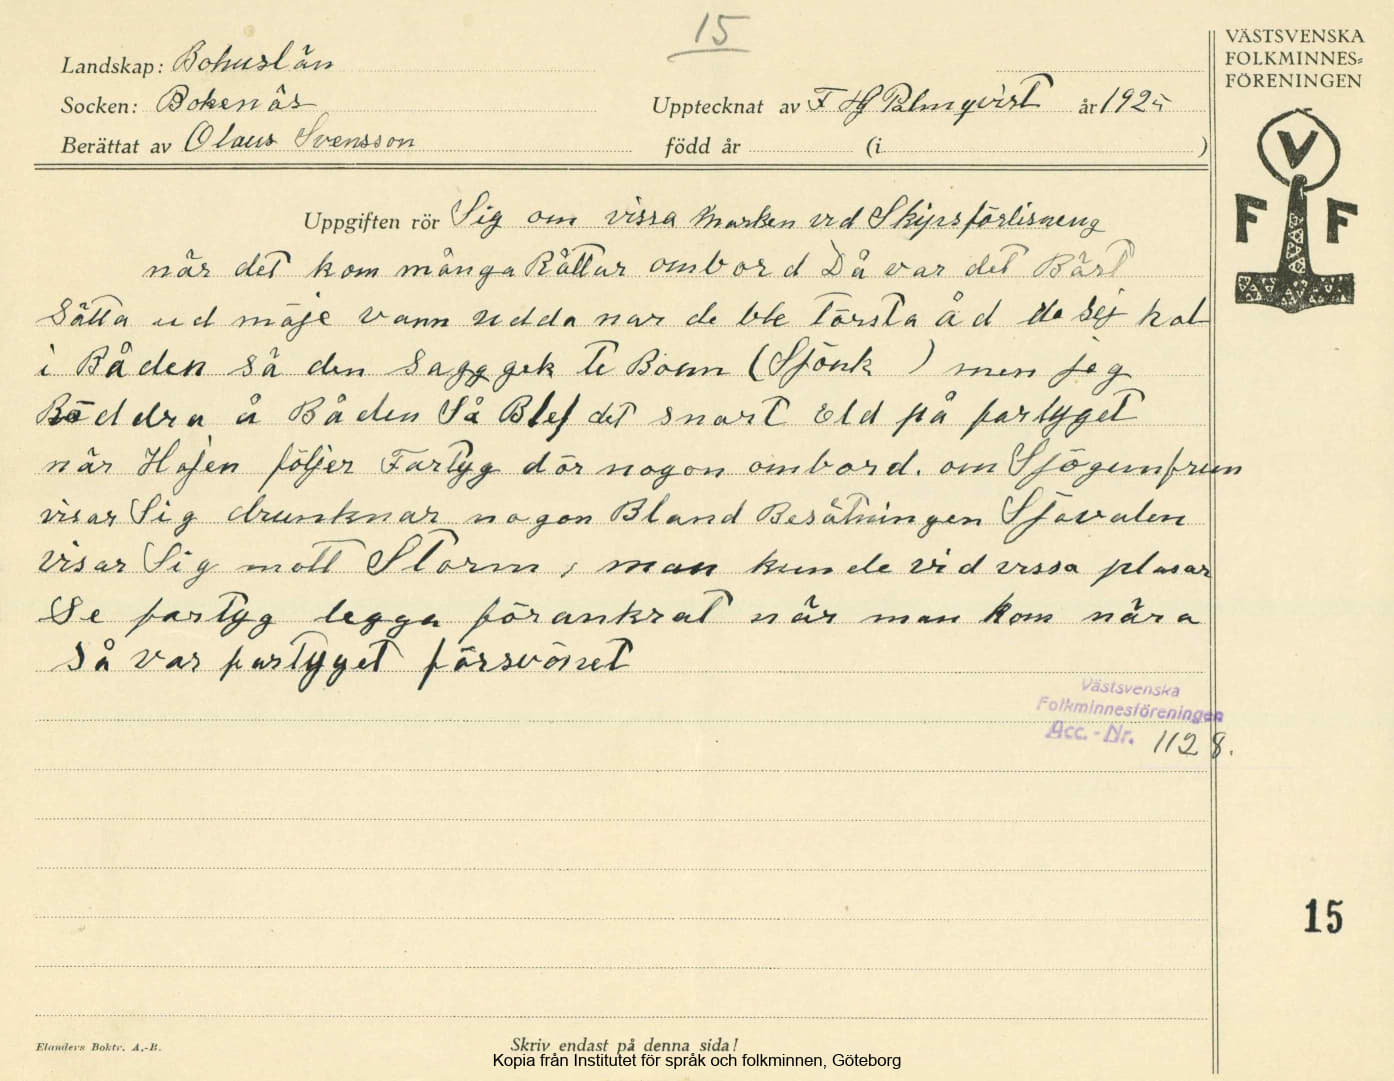 15
VÄSTSVENSKA
FOLKMINNES=
FÖRENINGEN
V
F F
Landskap: Bohuslän
Socken: Bokenäs
Upptecknat av F Hj Palmqvist år 1925
Berättat av Olaus Svensson
född år (i )
Uppgiften rör Sig om vissa marken vid Skipsförlisneng
när det kom många Råttur ombord Då var det Bäst
Sätta ud möje vann udda nar de ble törsta å d do sej hol
i Båden så den sagg gek te Bonn (Sjönk ) men jeg
Bäddra å Båden Så Blef det snart Eld på fartyget
när Hajen följer Fartyg dör nogon ombord. om Sjögumfrun
visar Sig drunknar nogon Bland Besätningen Sjövalen
visar Sig mott Storm, man kunde vid vissa plasar
Se fartyg legga förankrat när man kom nära
så var fartyget försvönet
Västsvenska
Folkminnesföreningen
Acc. - Nr. 1128.
15
Elanders Boktr. A.-B.
Skriv endast på denna sida!
Kopia från Institutet för språk och folkminnen, Göteborg